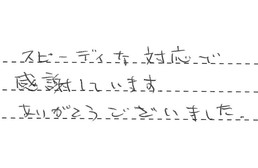 スピーディな対応で
感謝しています
ありがとうございました.